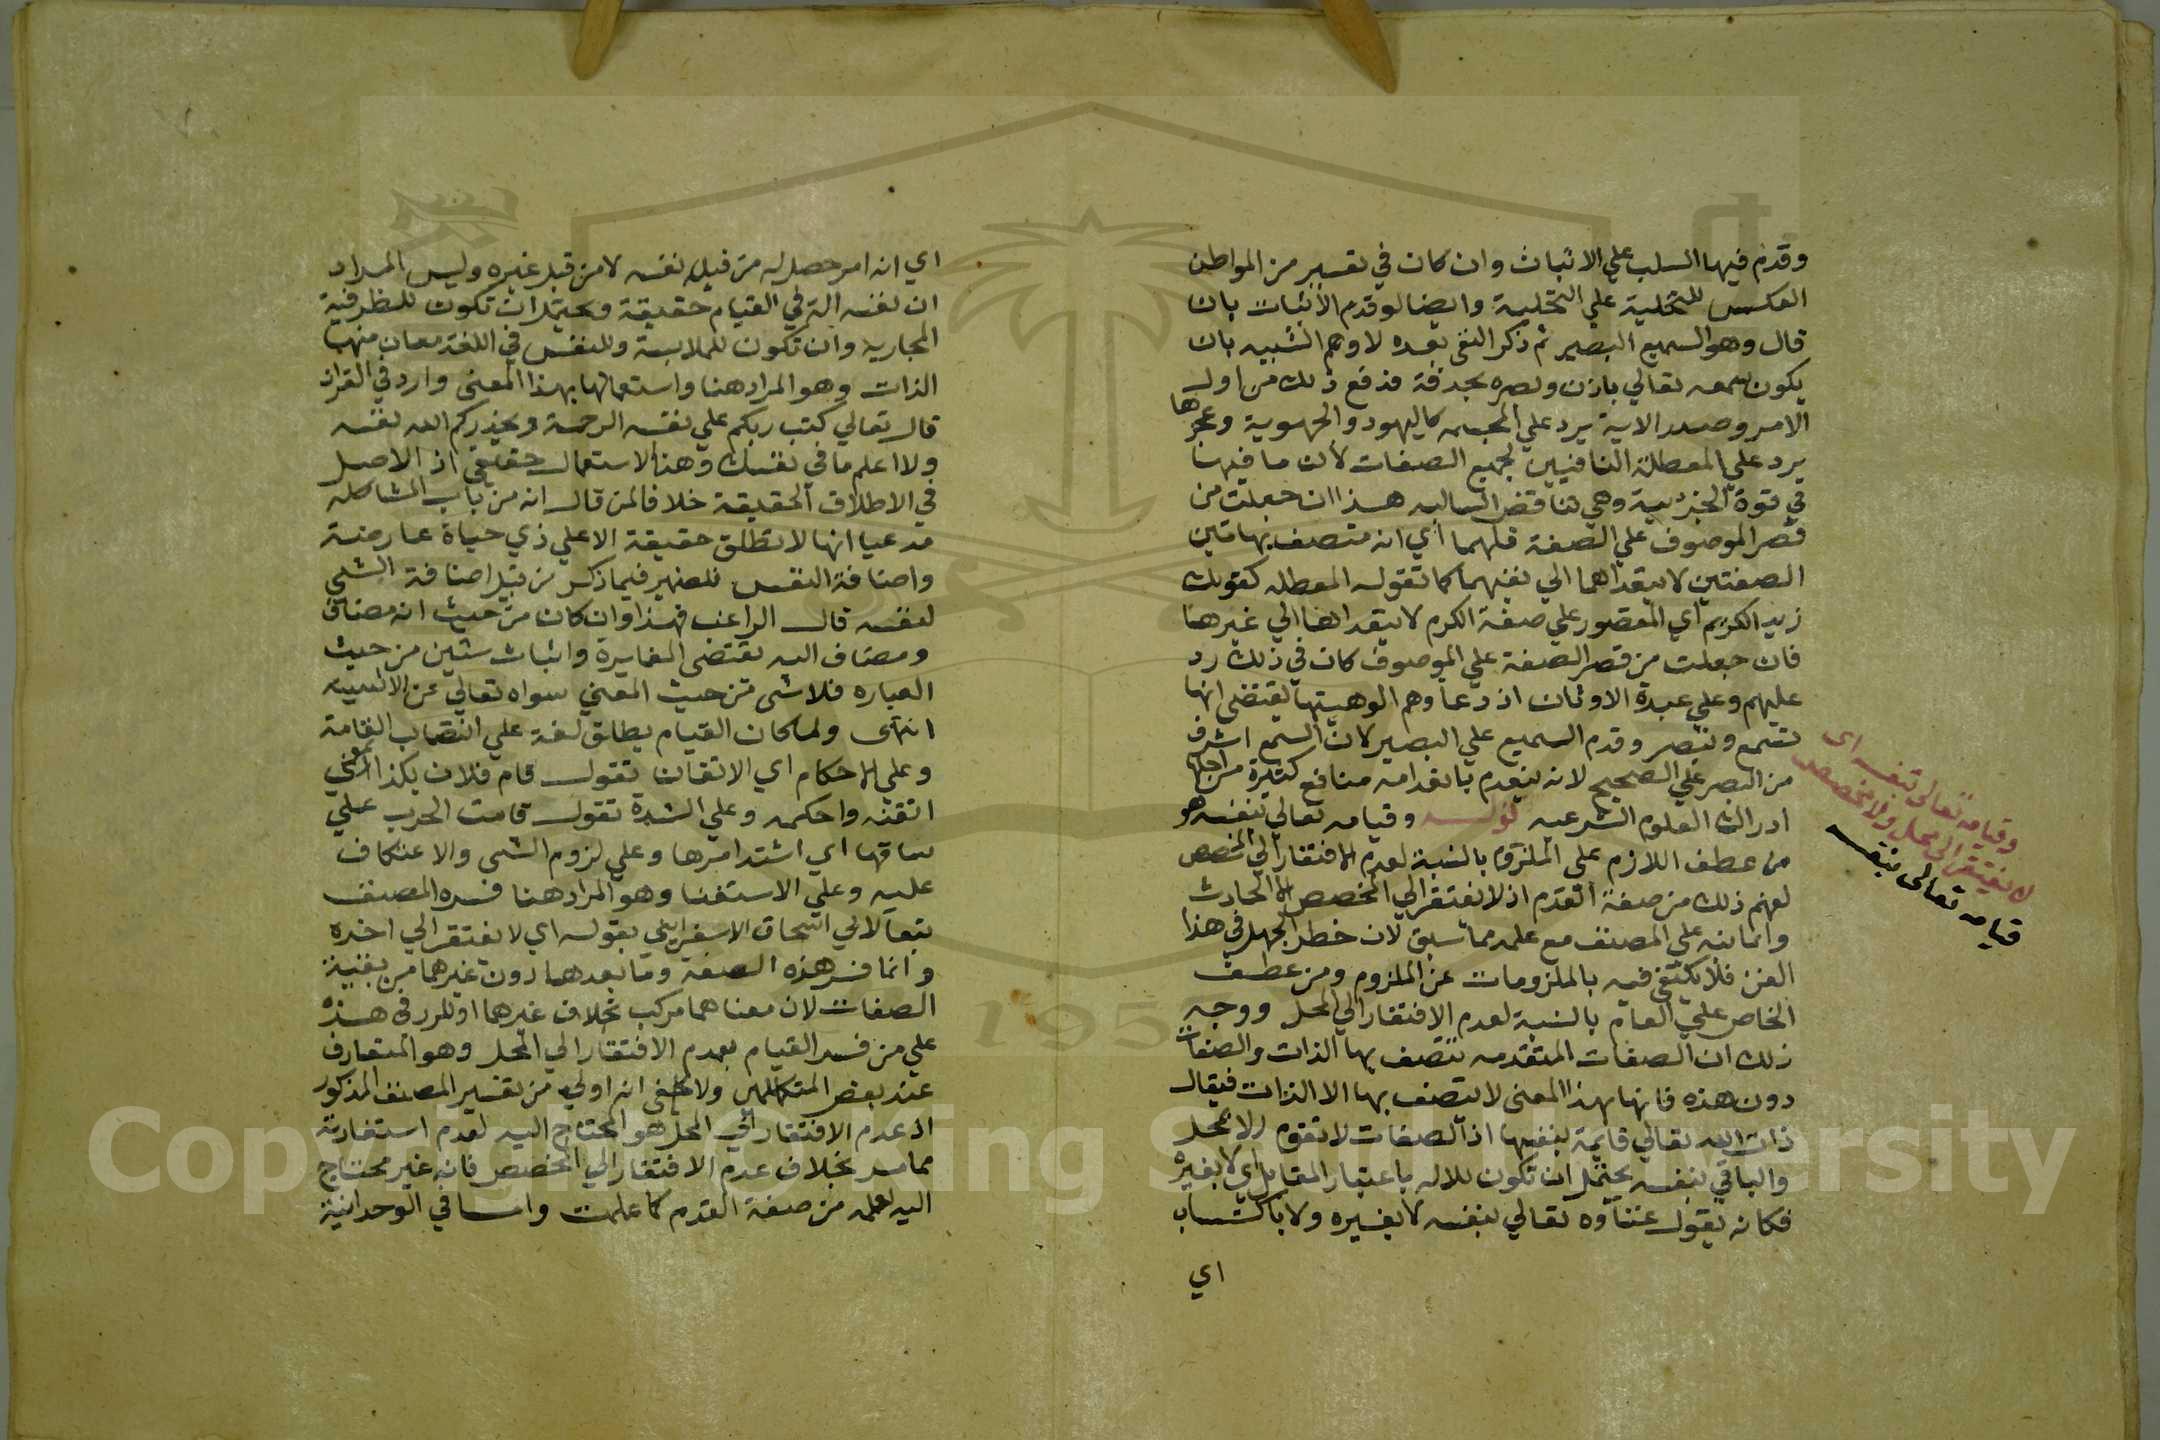 وقدم فيها السلب علي الاثبات وان كان في تفسير من المواطن
العكس للتخلية علي التحلية وايضا لو قدم الاثبات بان
قال وهو السميع البصير ثم ذكر النفي بعده لاوهم التشبيه بان
يكون سمعه تعالي باذن وبصره بحدقة فدفع ذلك من اول
الامر وصدر الاية يرد علي المجسمه كاليهود والجهوية وعجزها
يرد علي المعطلة النافيين لجميع الصفات لان ما فيها
في قوة الجزئية وهي تناقض السالبه هذا ان جعلت من
قصر الموصوف علي الصفة قلهما أي انه متصف بهاتين
الصفتين لا يتعداهما الي نفيهما كما تقوله المعطله كقولك
زيد الكريم أي المقصور علي صفة الكرم لا يتعداها الي غيرها
فان جعلت من قصر الصفة علي الموصوف كان في ذلك رد
عليهم وعلي عبدة الاوثان اذ دعاوهم الوهيتها يقتضي انها
تسمع وتبصر وقدم السميع علي البصير لان السمع اشرف
من البصر علي الصحيح لانه ينعدم بانعدامه منافع كثيرة من اجلها
ادراك العلوم الشرعيه قوله وقيامه تعالي بنفسه هو
من عطف اللازم علي الملزوم بالنسبة لعدم الافتقار الي المخصص
لفهم ذلك من صفة القدم اذ لا يفتقر الي المخصص الا الحادث
وانما نبه علي المصنف مع علمه مما سبق لان خطر الجهل في هذا
الفن فلا يكتفي فيه بالملزومات عن الملزوم ومن عطف
الخاص علي العام بالنسبة لعدم الافتقار الي المحل ووجه
ذلك ان الصفات المتقدمه تتصف بها الذات والصفات
دون هذه فانها بهذا المعني لا يتصف بها الا الذات فيقال
ذات الله تعالي قايمة بنفسها اذ الصفات لا تقوم الا بمحل
والباقي بنفسه يحتمل ان تكون للاله باعتبار المقابل اي لا بغيره
فكانه يقول غناوه تعالي بنفسه لا بغيره ولا باكتساب
اي
وقيامه تعالي بنفسه اي
لا يفتقر الي محل ولا مخصص
قيامه تعالي بنفسه
اي انه امر حصل له من قبل نفسه لا من قبل غيره وليس المراد
ان نفسه الة في القيام حقيقة ويحتمل ان تكون للظرفية
المجازيه وان تكون للملابسة وللنفس في اللغة معان منها
الذات وهو المراد هنا واستعمالها بهذا المعني وارد في القران
قال تعالي كتب ربكم علي نفسه الرحمة ويحذركم الله نفسه
ولا اعلم ما في نفسك وهذا الاستعمال حقيقي اذ الاصل
في الاطلاق الحقيقة خلافا لمن قال انه من باب المشاكله
مدعيا انها لا تطلق حقيقة الا علي ذي حياة عارضة
واضافة النفس للضمير فيما ذكر من قبيل اضافة الشي
لنفسه قال الراغب فهذا وان كان من حيث انه مضاف
ومضاف اليه يقتضي المغايرة واثبات شيئين من حيث
العباره فلا شي من حيث المعني سواه تعالي عن الاثنينيه
انتهى ولما كان القيام يطلق لغة علي انتصاب القامة
وعلي الاحكام اي الاتقان تقول قام فلان بكذا بمعني
اتقنه واحكمه وعلي الشدة تقول قامت الحرب علي
ساقها اي اشتد امرها وعلي لزوم الشي والاعتكاف
عليه وعلي الاستغنا وهو المراد هنا فسره المصنف
تبعا لابي اسحاق الاسفرايني بقوله اي لا يفتقر الي اخره
وانما فسر هذه الصفة وما بعدها دون غيرهما من بقية
الصفات لان معناهما مركب بخلاف غيرهما او للرد في هذه
علي من فسر القيام بعدم الافتقار الي المحل وهو المتعارف
عند بعض المتكلمين ولا يخفي انه اولي من تفسير المصنف المذكور
اذ عدم الافتقار الي المحل هو المحتاج اليه لعدم استفادته
مما مر بخلاف عدم الافتقار الي المخصص فانه غير محتاج
اليه لعلمه من صفة القدم كما علمت واما في الوحدانية
Copyright © King Saud University
1957